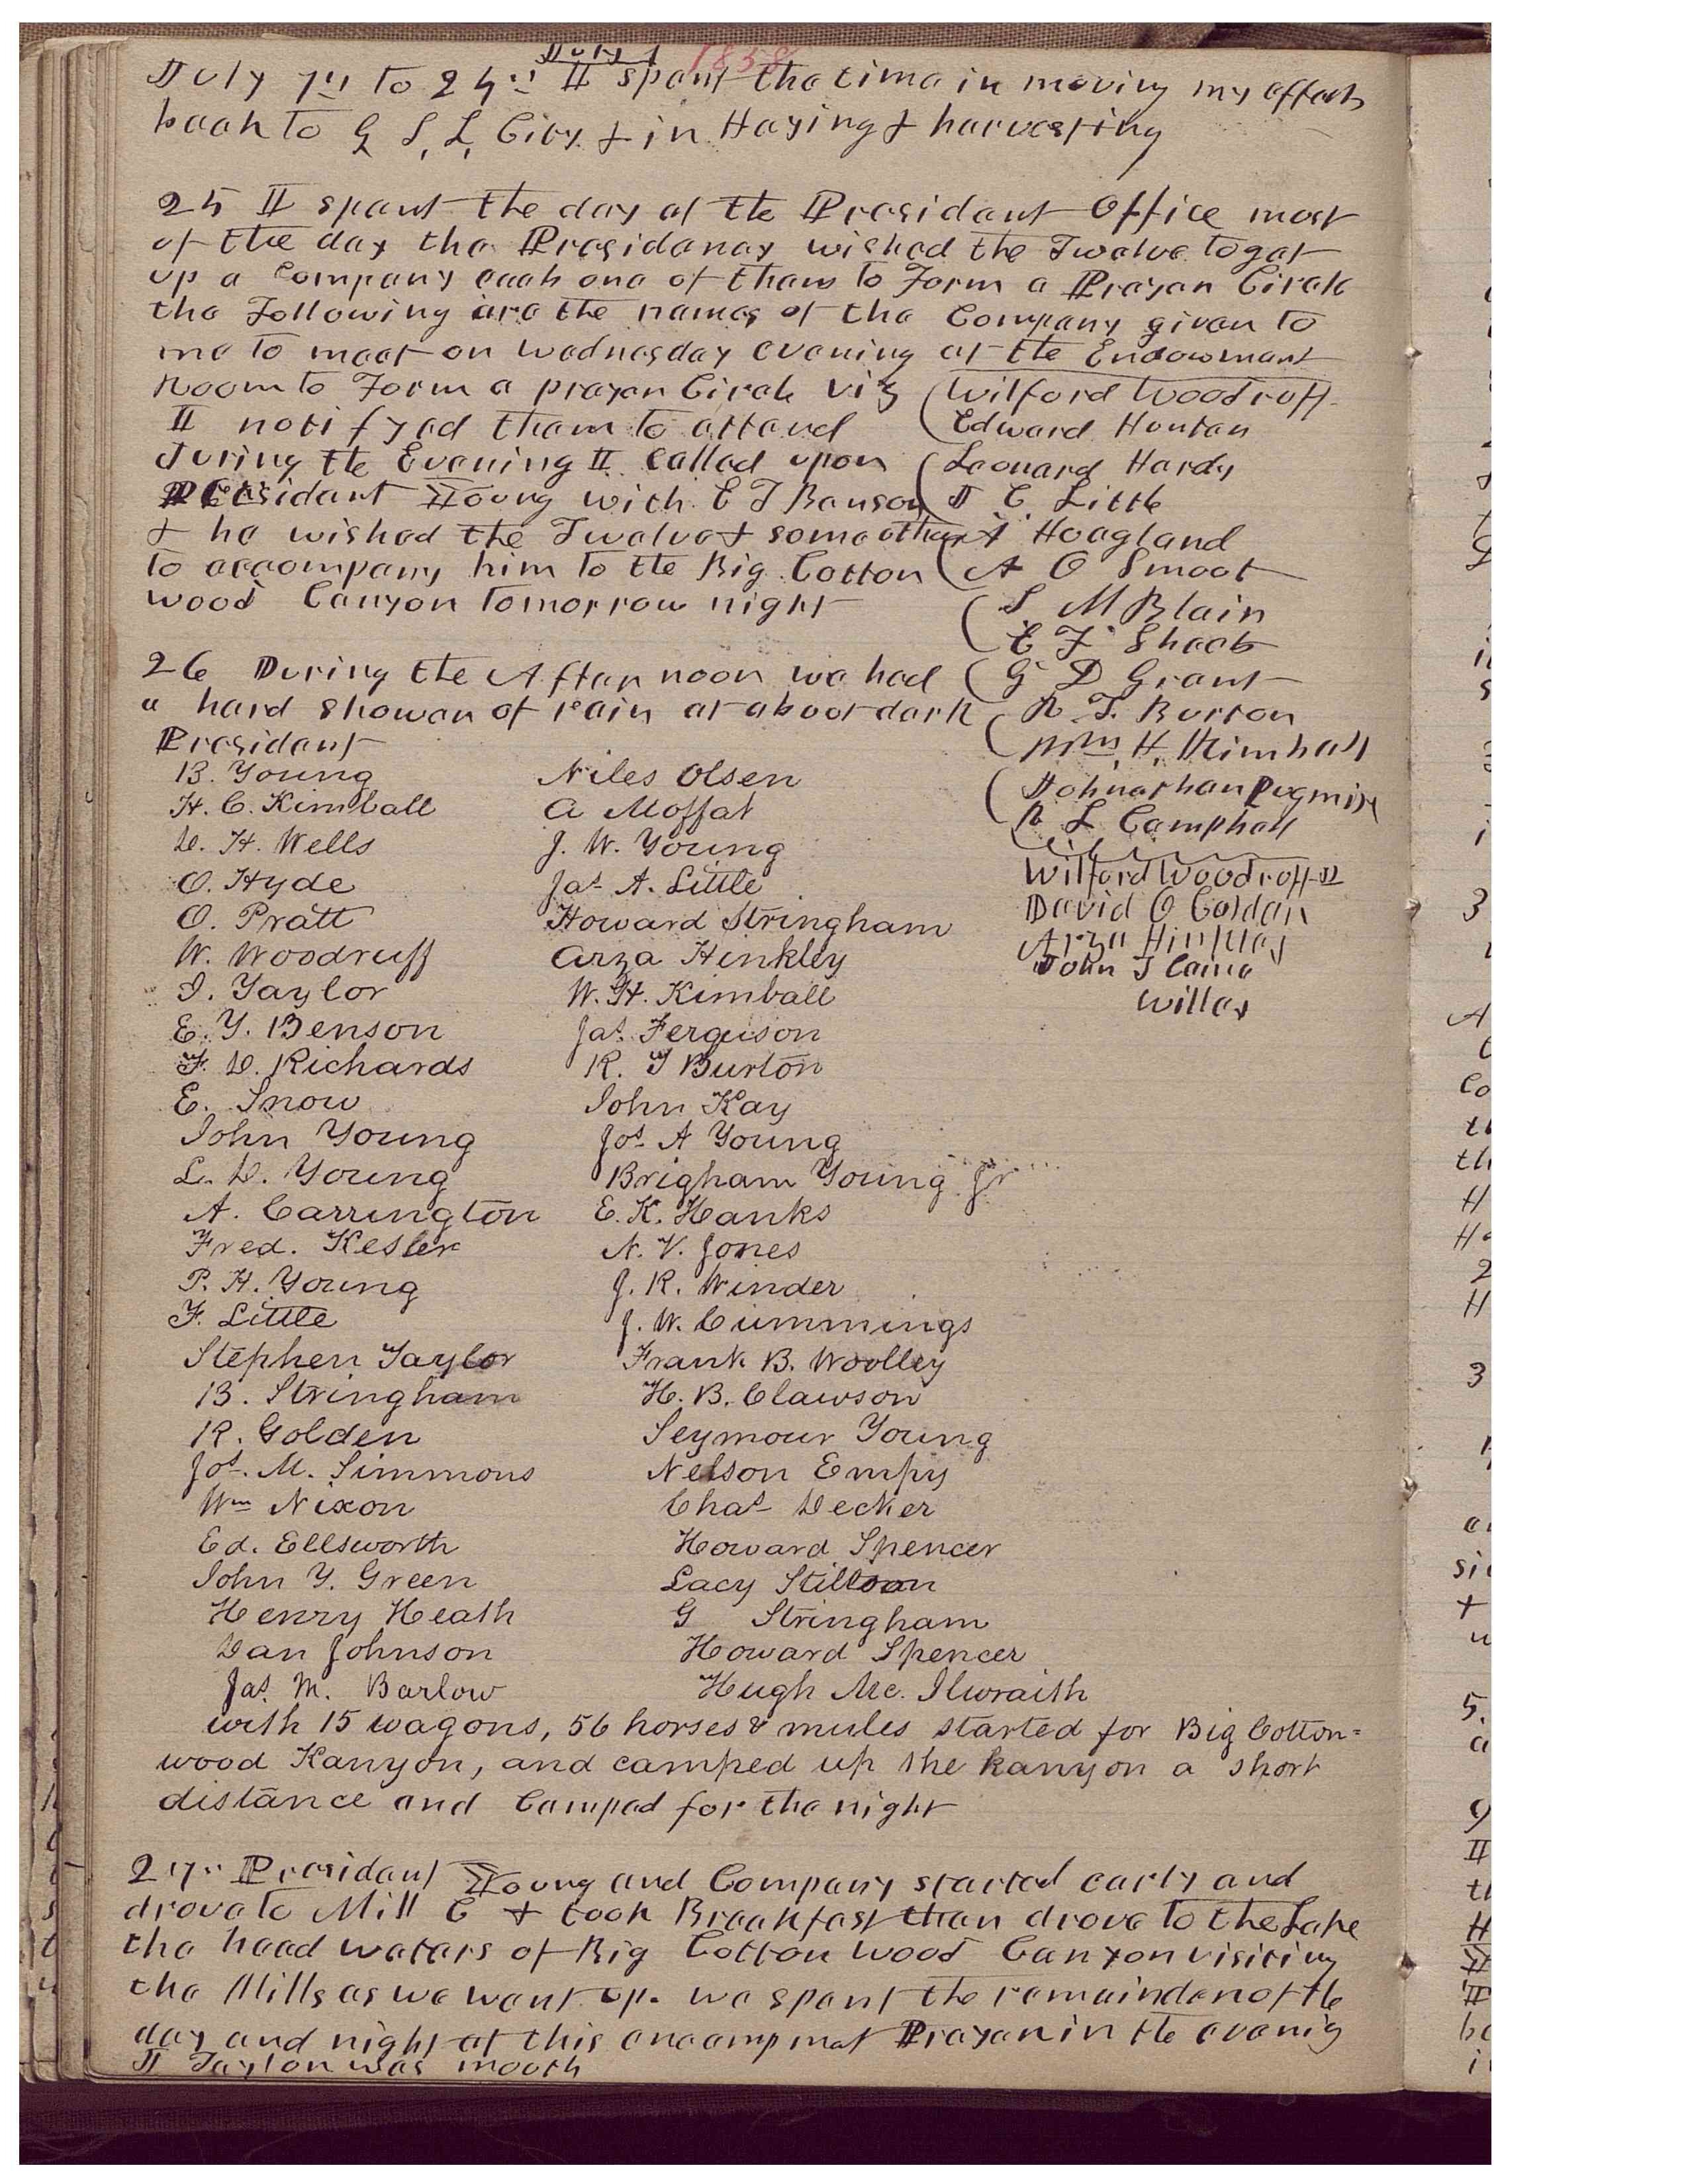 July 1858
July 7th to 24th I spent the time in moving my effects
back to G S, L, City & in Haying & harvesting
25 I spent the day at the President Office most
of the day the Presidency wished the Twelve to get
up a Company each one of them to Form a Prayer Circle
the Following are the names of the Company given to
me to meet on Wednesday evening at the Endowment
Room to Form a prayer Circle viz (Wilford Woodruff
I notifyed them to attend (Edward Hunter
During the Evening I called upon (Leonard Hardy
President Young with E T Benson (J C. Little
& he wished the Twelve & some others (A Hoagland
to accompany him to the Big Cotton (A O Smoot
wood Canyon tomorrow night (S M Blain
E F Sheets
26 During the After noon we had (G D Grant
a hard shower of rain at about dark (R T. Burton
President (Wm, H, Kimball
B. Young Niles Olsen (Johnathan Pugmire
H. C. Kimball A Moffat R L Campbell
D. H. Wells J. W. Young
O. Hyde Jas A. Little Wilford Woodruff Jr
O. Pratt Howard Stringham David O Calder
W. Woodruff Arza Hinkley Arza Hinkley
J. Taylor W. H. Kimball John T Caine
E. T. Benson Jas. Ferguson Willes
F. D. Richards R. T Burton
E. Snow John Kay
John Young Jos. A Young
L. D. Young Brigham Young Jr
A. Carrington E. K. Hanks
Fred. Kesler N. V. Jones
P. H. Young J. R. Winder
F. Little J. W. Cummings
Stephen Taylor Frank B. Woolley
B. Stringham H. B. Clawson
R. Golden Seymour Young
Jos. M. Simmons Nelson Empy
Wm Nixon Chas Decker
Ed. Ellsworth Howard Spencer
John Y. Green Lacy Stilson
Henry Heath G Stringham
Dan Johnson Howard Spencer
Jas. M. Barlow Hugh Mc. Ilwraith
with 15 wagons, 56 horses & mules started for Big Cotton=
wood Kanyon, and camped up the kanyon a short
distance and Camped for the night
27th President Young and Company started early and
drove to Mill E & took Breakfast then drove to the Lake
the head waters of Big Cotton wood Canyon visiting
the Mills as we went up. we spent the remainder of the
day and night at this encampmet Prayer in the evenig
J Taylor was mouth